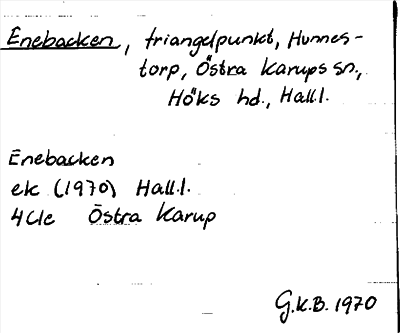 Enebacken, triangelpunkt, Hunnes-
torp, Östra Karups sn.,
Höks hd., Hall.
Enebacken
ek (1970) Hall.
4C1e Östra Karup
G.K.B. 1970